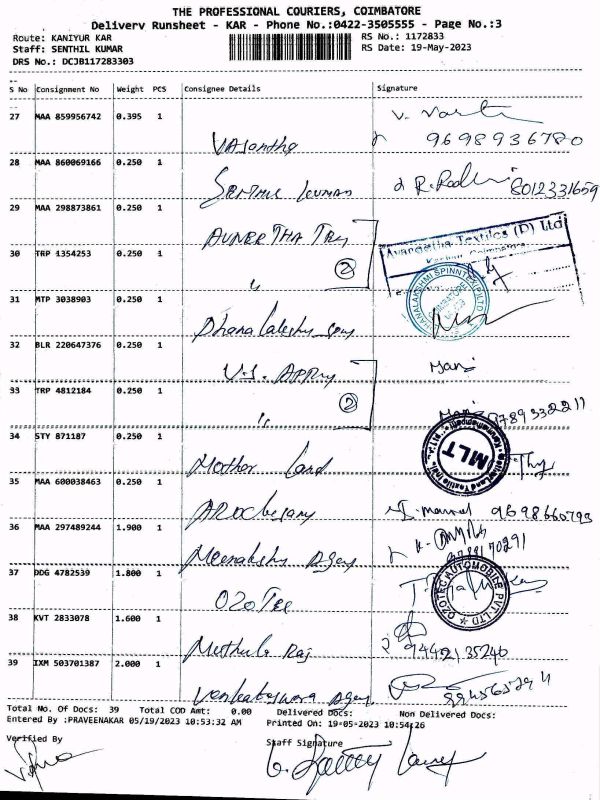 THE PROFESSIONAL COURIERS, COIMBATORE
Delivery Runsheet - KAR - Phone No.:0422-3505555 - Page No.:3
Route: KANIYUR KAR
RS No.: 1172833
Staff: SENTHIL KUMAR
RS Date: 19-May-2023
DRS No.: DCJB117283303
S No Consignment No Weight PCS Consignee Details Signature
27 MAA 859956742 0.395 1
Vasantha 9698936780
28 MAA 860069166 0.250 1
Senthil Kumar 8012331659
29 MAA 298873861 0.250 1
30 TRP 1354253 0.250 1
②
Avaneetha Textiles (P) Ltd
31 MTP 3038903 0.250 1
COIMBATORE
32 BLR 220647376 0.250 1
Mani
33 TRP 4812184 0.250 1
②
Mani 9789332211
34 STY 871187 0.250 1
Mother Land
MLT
35 MAA 600038463 0.250 1
9698660793
36 MAA 297489244 1.900 1
Meenakshi
37 DDG 4782539 1.800 1
OZOTEC AUTOMOBILE PVT LTD
38 KVT 2833078 1.600 1
Muthu Raj 9442135240
39 IXM 503701387 2.000 1
Total No. Of Docs: 39 Total COD Amt: 0.00 Delivered Docs: Non Delivered Docs:
Entered By :PRAVEENAKAR 05/19/2023 10:53:32 AM Printed On: 19-05-2023 10:54:26
Verified By
Staff Signature